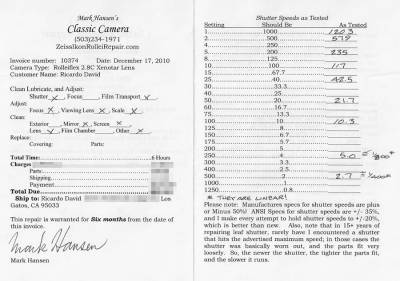 Mark Hansen's
Classic Camera
(503)234-1971
ZeissIkonRolleiRepair.com
Invoice number: 10374 Date: December 17, 2010
Camera Type: Rolleiflex 2.8C Xenotar Lens
Customer Name: Ricardo David
Clean Lubricate, and Adjust:
Shutter X, Focus, Film Transport X
Adjust:
Focus X, Viewing Lens X, Scale X
Clean:
Exterior, Mirror X, Screen X
Lens, Film Chamber, Other X
Replace:
Covering: Parts:
Total Time: 6 Hours
Charges
Parts:
Shipping
Payment
Total Due
Ship to: Ricardo David Los
Gatos, CA 95033
This repair is warranted for Six months from the date of
this invoice.
Mark Hansen
Mark Hansen
Shutter Speeds as Tested
Setting Should Be As Tested
1 1000 1203
2 500 579
4 250
5 200 235
8 125
10 100 117
15 67.7
25 40 42.5
30 33.3
40 25
50 20 21.7
60 16.7
75 13.3
100 10 10.3
125 8
150 6.7
175 5.7
200 5
250 4 5.0 =
300 3.3
400 2.5
500 2 2.7 =
1000 1
1250 0.8
* THEY ARE LINEAR!
Please note: Manufactures specs for shutter speeds are plus
or Minus 30%! ANSI Specs for shutter speeds are +/- 35%,
and I make every attempt to hold shutter speeds to +/-20%,
which is better than new. Also, note that in 15+ years of
repairing leaf shutter, rarely have I encountered a shutter
that hits the advertised maximum speed; in those cases the
shutter was basically worn out, and the parts fit very
loosely. So, the newer the shutter, the tighter the parts fit,
and the slower it runs.